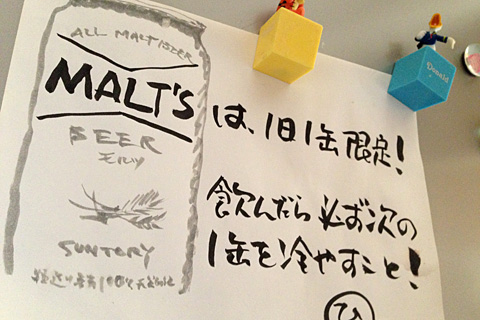 ALL MALT BEER
MALT'S
BEER
モルツ
SUNTORY
は、1日1缶限定!
飲んだら必ず次の
1缶を冷やすこと!
ひ
Donald